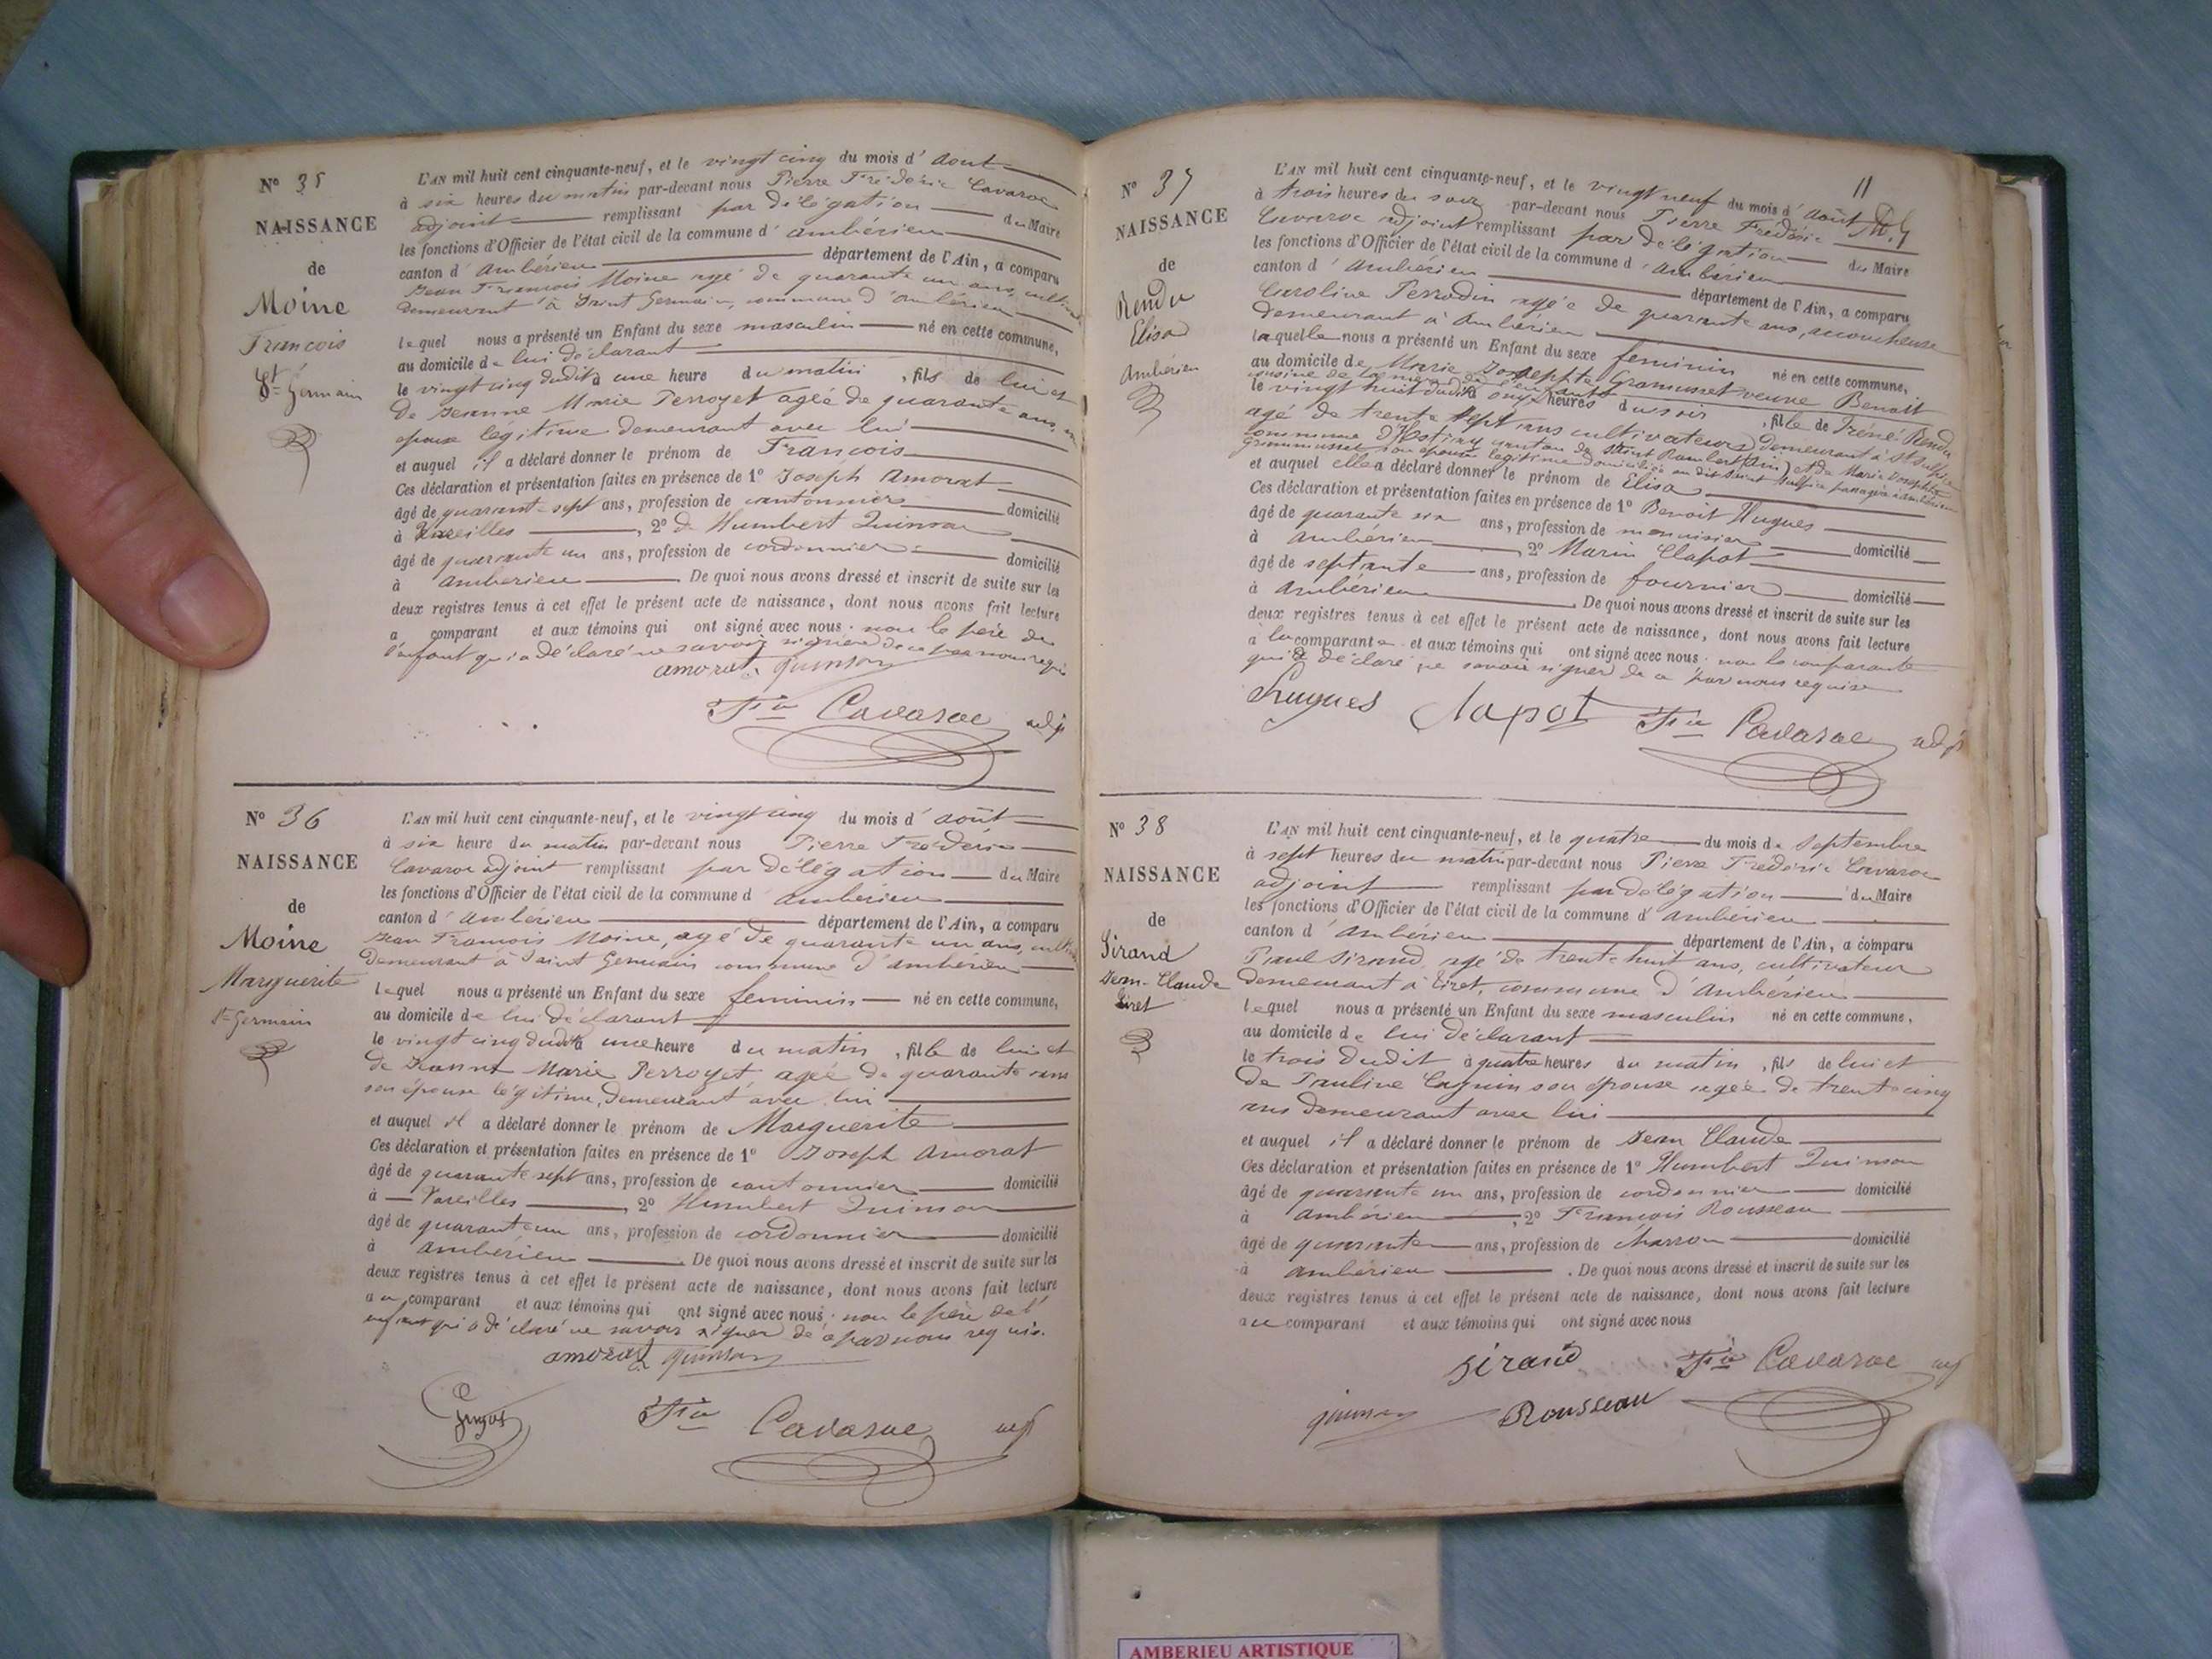 N° 35
NAISSANCE
de
Moine
François
St Germain
L'AN mil huit cent cinquante-neuf, et le vingt cinq du mois d' Aout
à six heures du matin par-devant nous Pierre Frédéric Cavaroc
adjoint remplissant par délégation du Maire
les fonctions d'Officier de l'état civil de la commune d' ambérieu
canton d' Ambérieu département de l'Ain, a comparu
Jean François Moine agé de quarante un ans,
demeurant à Saint Germain, commune d'ambérieu
lequel nous a présenté un Enfant du sexe masculin né en cette commune,
au domicile de lui déclarant
le vingt cinq dudit à une heure du matin, fils de lui et
de Jeanne Marie Perroyet agée de quarante ans,
épouse légitime demeurant avec lui
et auquel il a déclaré donner le prénom de François
Ces déclaration et présentation faites en présence de 1° Joseph Amorat
âgé de quarante-sept ans, profession de cantonnier domicilié
à Vareilles, 2° de Humbert Quinson
âgé de quarante un ans, profession de cordonnier domicilié
à amberieu. De quoi nous avons dressé et inscrit de suite sur les
deux registres tenus à cet effet le présent acte de naissance, dont nous avons fait lecture
a comparant et aux témoins qui ont signé avec nous. non le père de
l'enfant qui a déclaré ne savoir signer de ce par nous requis
amorat quinson
Fric Cavaroc adj
N° 36
NAISSANCE
de
Moine
Marguerite
St Germain
L'AN mil huit cent cinquante-neuf, et le vingt cinq du mois d' août
à six heure du matin par-devant nous Pierre Frédéric
Cavaroc adjoint remplissant par délégation du Maire
les fonctions d'Officier de l'état civil de la commune d' ambérieu
canton d' Ambérieu département de l'Ain, a comparu
Jean François Moine, agé de quarante un ans,
demeurant à Saint Germain commune d'ambérieu
lequel nous a présenté un Enfant du sexe feminin né en cette commune,
au domicile de lui déclarant
le vingt cinq dudit à une heure du matin, fille de lui et
de Jeanne Marie Perroyet agée de quarante ans
son épouse légitime, demeurant avec lui
et auquel il a déclaré donner le prénom de Marguerite
Ces déclaration et présentation faites en présence de 1° Joseph Amorat
âgé de quarante sept ans, profession de cantonnier domicilié
à Vareilles, 2° Humbert Quinson
âgé de quarante un ans, profession de cordonnier domicilié
à ambérieu. De quoi nous avons dressé et inscrit de suite sur les
deux registres tenus à cet effet le présent acte de naissance, dont nous avons fait lecture
au comparant et aux témoins qui ont signé avec nous. non le père de l'
enfant qui a déclaré ne savoir signer de ce par nous requis.
amorat quinson
Fric Cavaroc adj
11
N° 37
NAISSANCE
de
Rendu
Elisa
Ambérieu
L'AN mil huit cent cinquante-neuf, et le vingt neuf du mois d' Août
à trois heures du soir par-devant nous Pierre Frédéric
Cavaroc adjoint remplissant par délégation du Maire
les fonctions d'Officier de l'état civil de la commune d' Ambérieu
canton d' Ambérieu département de l'Ain, a comparu
Caroline Perrodin agée de quarante ans, accoucheuse
demeurant à Ambérieu
laquelle nous a présenté un Enfant du sexe féminin né en cette commune,
au domicile de Marie Josephte Gramusset veuve Benoit
cousine de la mère de l'enfant
le vingt huit dudit à onze heures du soir, fille de Iréné Rendu
agé de trente sept ans cultivateur demeurant à St Sulpice
commune d'Hostiaz canton de Saint Rambert (Ain) et de Marie Josephte
Grammusset son épouse légitime domiciliée au dit Saint Sulpice passagère à ambérieu
et auquel elle a déclaré donner le prénom de Elisa
Ces déclaration et présentation faites en présence de 1° Benoit Hugues
âgé de quarante six ans, profession de menuisier domicilié
à ambérieu, 2° Marin Clapot
âgé de septante ans, profession de fournier domicilié
à Ambérieu. De quoi nous avons dressé et inscrit de suite sur les
deux registres tenus à cet effet le présent acte de naissance, dont nous avons fait lecture
à la comparante et aux témoins qui ont signé avec nous. non la comparante
qui a déclaré ne savoir signer de ce par nous requise
hugues Clapot Fric Cavaroc adj
N° 38
NAISSANCE
de
Sirand
Jean-Claude
Tiret
L'AN mil huit cent cinquante-neuf, et le quatre du mois de Septembre
à sept heures du matin par-devant nous Pierre Frédéric Cavaroc
adjoint remplissant par délégation du Maire
les fonctions d'Officier de l'état civil de la commune d' ambérieu
canton d' Ambérieu département de l'Ain, a comparu
Paul Sirand, agé de trente huit ans, cultivateur
demeurant à Tiret, commune d'Ambérieu
lequel nous a présenté un Enfant du sexe masculin né en cette commune,
au domicile de lui déclarant
le trois dudit à quatre heures du matin, fils de lui et
de Pauline Cagnin son épouse agée de trente cinq
ans demeurant avec lui
et auquel il a déclaré donner le prénom de Jean Claude
Ces déclaration et présentation faites en présence de 1° Humbert Quinson
âgé de quarante un ans, profession de cordonnier domicilié
à ambérieu, 2° François Rousseau
âgé de quarante ans, profession de charron domicilié
à ambérieu. De quoi nous avons dressé et inscrit de suite sur les
deux registres tenus à cet effet le présent acte de naissance, dont nous avons fait lecture
au comparant et aux témoins qui ont signé avec nous
Sirand Fric Cavaroc adj
quinson Rousseau
AMBERIEU ARTISTIQUE